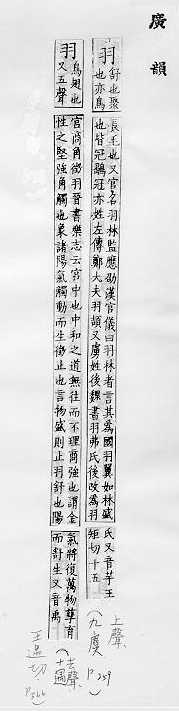 廣韻
羽
舒也聚也亦鳥
長毛也又官名羽林監應劭漢官儀曰羽林者言其為國羽翼如林盛
也皆冠鶡冠亦姓左傳鄭大夫羽頡又虜姓後魏書羽弗氏後改為羽
氏又音芋王
矩切十五
上聲
(九麌
P259
羽
鳥翅也又五聲
宮商角徵羽晉書樂志云宮中也中和之道無往而不理商強也謂金
性之堅強角觸也象諸陽氣觸動而生徵止也言物盛則止羽舒也陽
氣將復萬物孳育
而舒生又音禹
去聲
(十遇
王遇切
P366